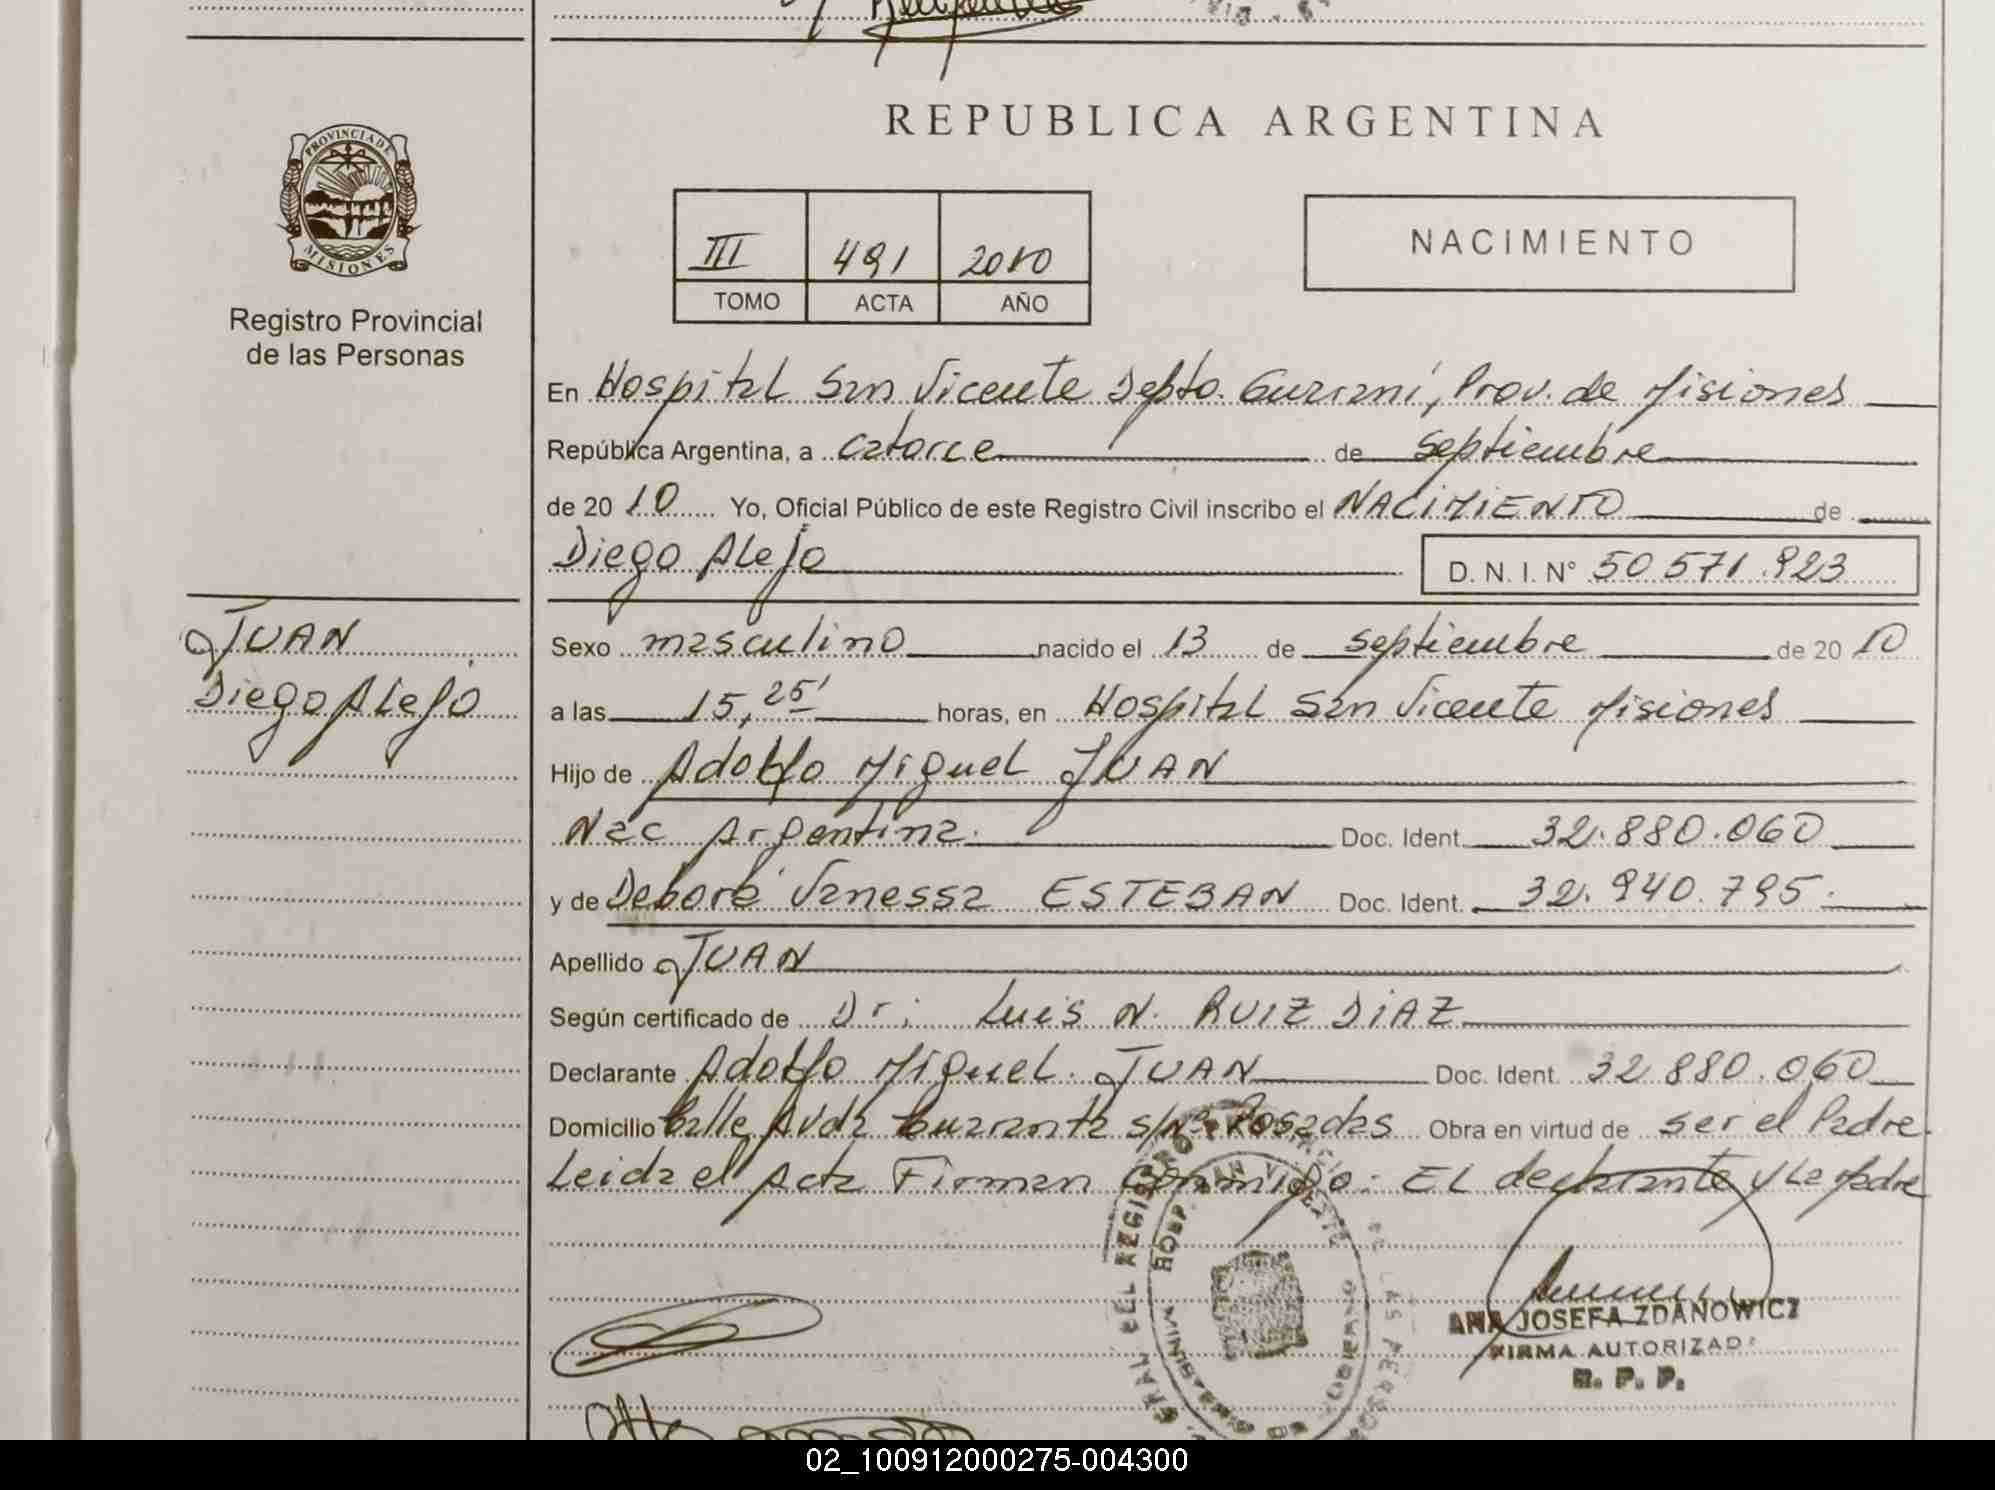 REPUBLICA ARGENTINA
PROVINCIA DE
MISIONES
Registro Provincial
de las Personas
III 491 2010
TOMO ACTA AÑO
NACIMIENTO
En Hospital San Vicente Depto. Guaraní, Prov. de Misiones
República Argentina, a catorce de septiembre
de 2010 Yo, Oficial Público de este Registro Civil inscribo el NACIMIENTO de
Diego Alejo
D. N. I. N° 50 571.923
JUAN
Diego Alejo
Sexo masculino nacido el 13 de septiembre de 2010
a las 15,25' horas, en Hospital San Vicente Misiones
Hijo de Adolfo Miguel JUAN
Nac Argentina. Doc. Ident. 32.880.060
y de Debora Vanessa ESTEBAN Doc. Ident. 32.940.795.
Apellido JUAN
Según certificado de Dr: Luis N. RUIZ DIAZ
Declarante Adolfo Miguel JUAN Doc. Ident. 32 880.060
Domicilio Calle Avda Guaranta s/Nº Posadas Obra en virtud de ser el Padre.
Leida el Acta Firman Conmigo: El declarante y La Madre
HOSP. SAN VICENTE
ANA JOSEFA ZDANOWICZ
FIRMA AUTORIZADA
R. P. P.
02_100912000275-004300